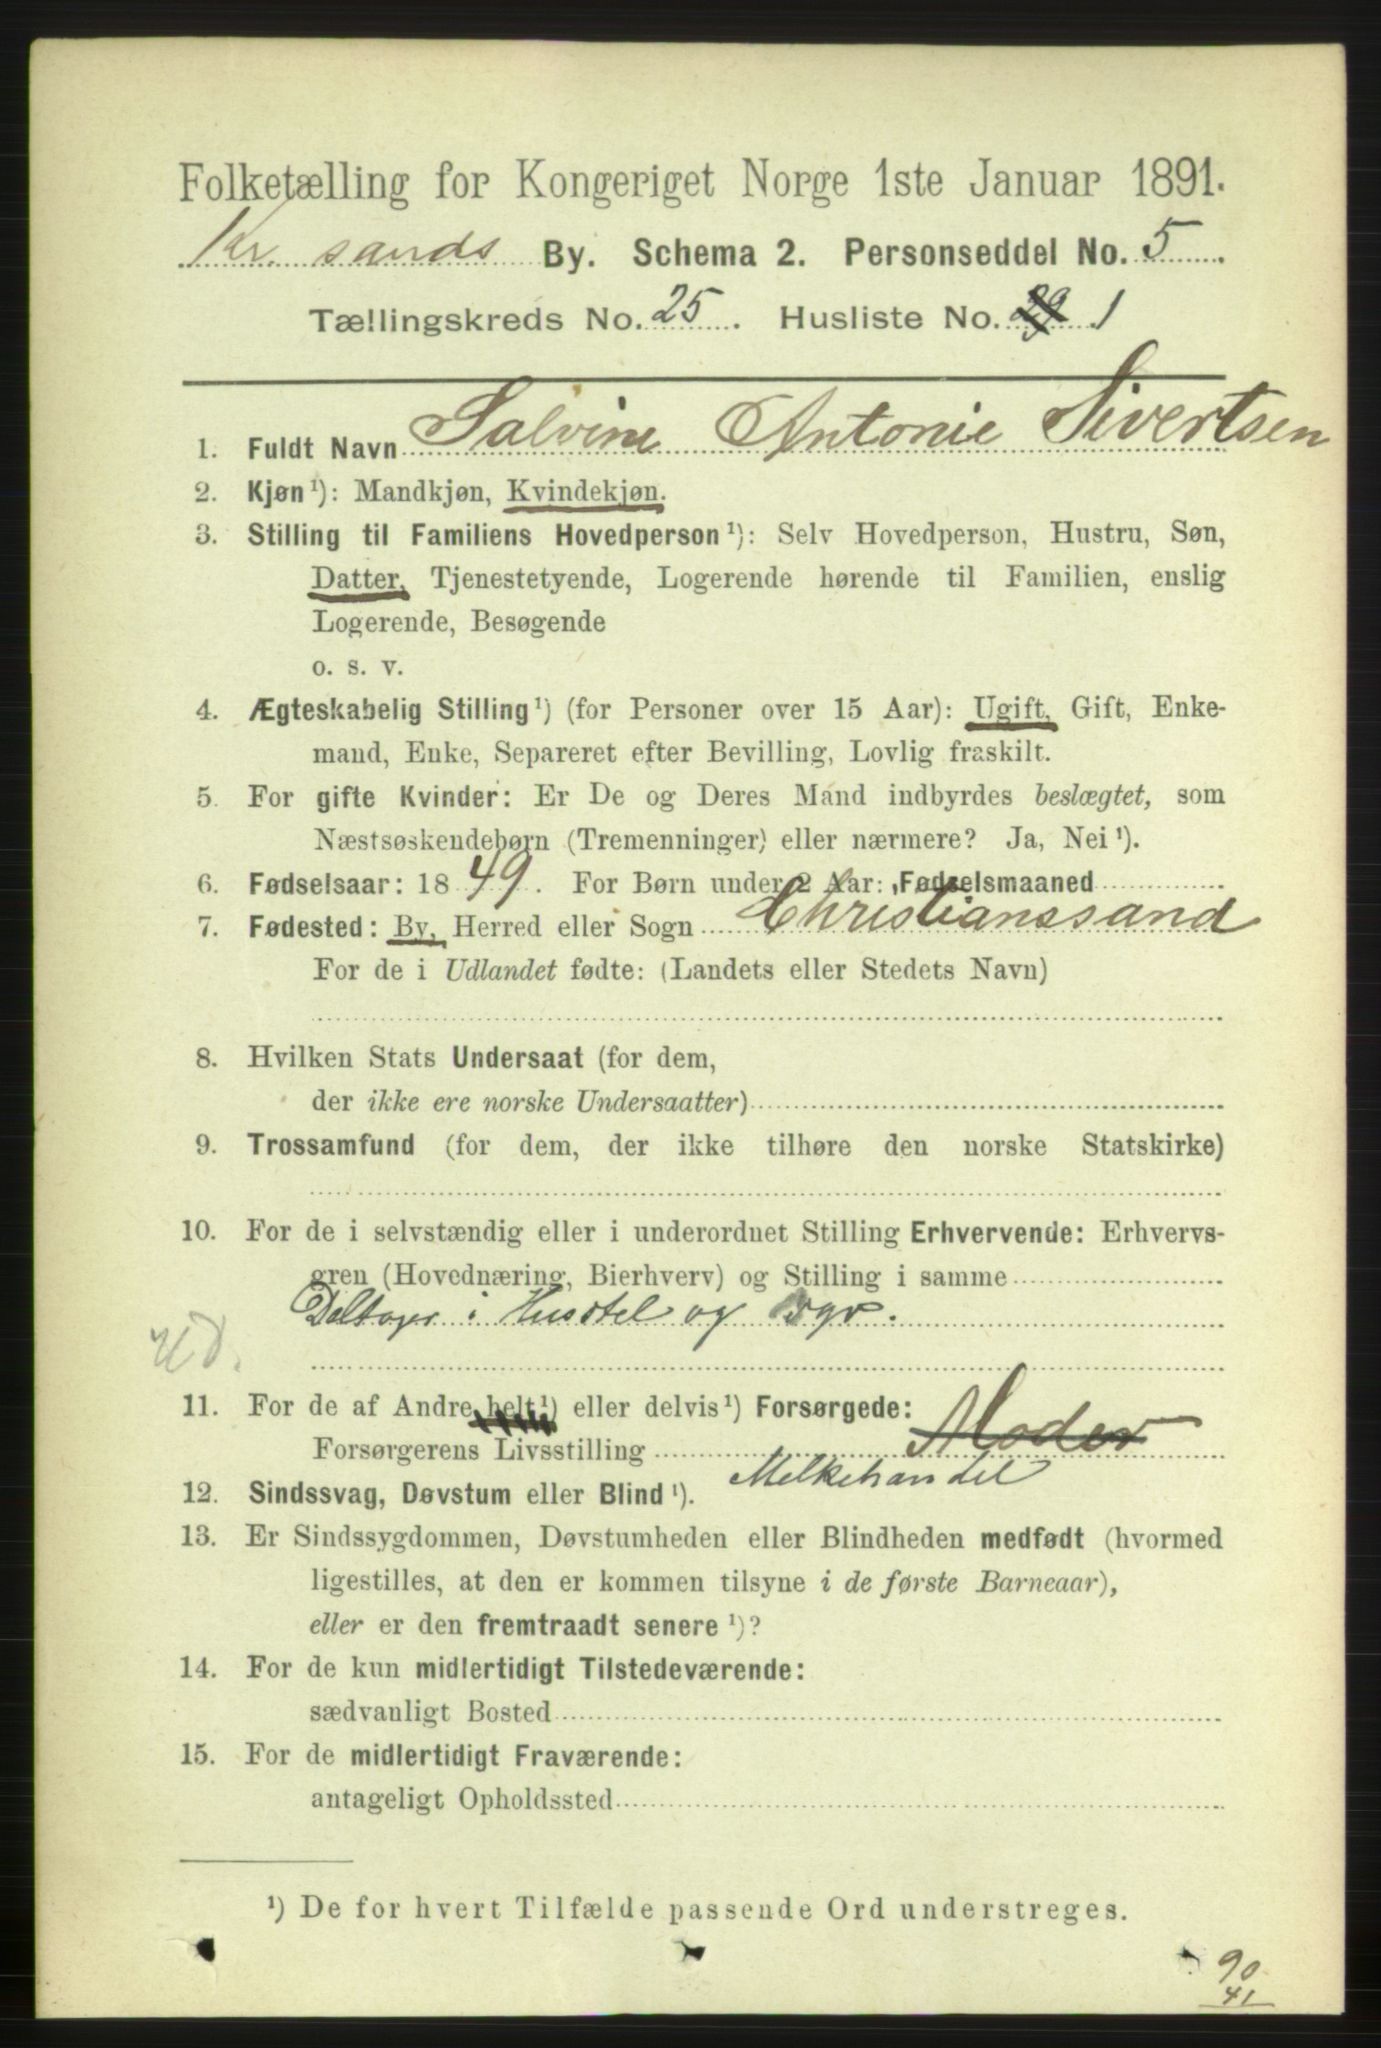 Folketælling for Kongeriget Norge 1ste Januar 1891.
Kr. sands By. Schema 2. Personseddel No. 5
Tællingskreds No. 25. Husliste No. 29 1
1. Fuldt Navn Salvine Antonie Sivertsen
2. Kjøn¹): Mandkjøn, Kvindekjøn.
3. Stilling til Familiens Hovedperson¹): Selv Hovedperson, Hustru, Søn,
Datter, Tjenestetyende, Logerende hørende til Familien, enslig
Logerende, Besøgende
o. s. v.
4. Ægteskabelig Stilling¹) (for Personer over 15 Aar): Ugift, Gift, Enke-
mand, Enke, Separeret efter Bevilling, Lovlig fraskilt.
5. For gifte Kvinder: Er De og Deres Mand indbyrdes beslægtet, som
Næstsøskendebørn (Tremenninger) eller nærmere? Ja, Nei¹).
6. Fødselsaar: 1849. For Børn under 2 Aar: Fødselsmaaned
7. Fødested: By, Herred eller Sogn Christianssand
For de i Udlandet fødte: (Landets eller Stedets Navn)
8. Hvilken Stats Undersaat (for dem,
der ikke ere norske Undersaatter)
9. Trossamfund (for dem, der ikke tilhøre den norske Statskirke)
10. For de i selvstændig eller i underordnet Stilling Erhvervende: Erhvervs-
gren (Hovednæring, Bierhverv) og Stilling i samme
Deltager i Husstel og
11. For de af Andre helt¹) eller delvis¹) Forsørgede:
Forsørgerens Livsstilling Moder
Melkehandel
12. Sindssvag, Døvstum eller Blind¹).
13. Er Sindssygdommen, Døvstumheden eller Blindheden medfødt (hvormed
ligestilles, at den er kommen tilsyne i de første Barneaar),
eller er den fremtraadt senere¹)?
14. For de kun midlertidigt Tilstedeværende:
sædvanligt Bosted
15. For de midlertidigt Fraværende:
antageligt Opholdssted
¹) De for hvert Tilfælde passende Ord understreges.
90
41